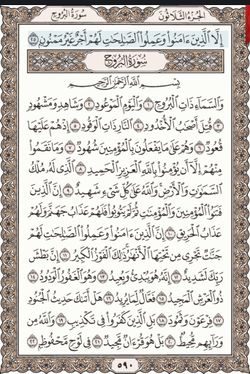 الجُزءُ الثَّلاثُونَ سُورَةُ البُرُوجِ
إِلَّا ٱلَّذِينَ ءَامَنُوا۟ وَعَمِلُوا۟ ٱلصَّٰلِحَٰتِ لَهُمْ أَجْرٌ غَيْرُ مَمْنُونٍۭ ٢٥
سُورَةُ البُرُوجِ
بِسْمِ ٱللَّهِ ٱلرَّحْمَٰنِ ٱلرَّحِيمِ
وَٱلسَّمَآءِ ذَاتِ ٱلْبُرُوجِ ١ وَٱلْيَوْمِ ٱلْمَوْعُودِ ٢ وَشَاهِدٍ وَمَشْهُودٍ
٣ قُتِلَ أَصْحَٰبُ ٱلْأُخْدُودِ ٤ ٱلنَّارِ ذَاتِ ٱلْوَقُودِ ٥ إِذْ هُمْ عَلَيْهَا
قُعُودٌ ٦ وَهُمْ عَلَىٰ مَا يَفْعَلُونَ بِٱلْمُؤْمِنِينَ شُهُودٌ ٧ وَمَا نَقَمُوا۟
مِنْهُمْ إِلَّآ أَن يُؤْمِنُوا۟ بِٱللَّهِ ٱلْعَزِيزِ ٱلْحَمِيدِ ٨ ٱلَّذِى لَهُۥ مُلْكُ
ٱلسَّمَٰوَٰتِ وَٱلْأَرْضِ وَٱللَّهُ عَلَىٰ كُلِّ شَىْءٍ شَهِيدٌ ٩ إِنَّ ٱلَّذِينَ
فَتَنُوا۟ ٱلْمُؤْمِنِينَ وَٱلْمُؤْمِنَٰتِ ثُمَّ لَمْ يَتُوبُوا۟ فَلَهُمْ عَذَابُ جَهَنَّمَ وَلَهُمْ
عَذَابُ ٱلْحَرِيقِ ١٠ إِنَّ ٱلَّذِينَ ءَامَنُوا۟ وَعَمِلُوا۟ ٱلصَّٰلِحَٰتِ لَهُمْ
جَنَّٰتٌ تَجْرِى مِن تَحْتِهَا ٱلْأَنْهَٰرُ ذَٰلِكَ ٱلْفَوْزُ ٱلْكَبِيرُ ١١ إِنَّ بَطْشَ
رَبِّكَ لَشَدِيدٌ ١٢ إِنَّهُۥ هُوَ يُبْدِئُ وَيُعِيدُ ١٣ وَهُوَ ٱلْغَفُورُ ٱلْوَدُودُ ١٤
ذُو ٱلْعَرْشِ ٱلْمَجِيدُ ١٥ فَعَّالٌ لِّمَا يُرِيدُ ١٦ هَلْ أَتَىٰكَ حَدِيثُ ٱلْجُنُودِ
١٧ فِرْعَوْنَ وَثَمُودَ ١٨ بَلِ ٱلَّذِينَ كَفَرُوا۟ فِى تَكْذِيبٍ ١٩ وَٱللَّهُ مِن
وَرَآئِهِم مُّحِيطٌۢ ٢٠ بَلْ هُوَ قُرْءَانٌ مَّجِيدٌ ٢١ فِى لَوْحٍ مَّحْفُوظٍۭ ٢٢
٥٩٠